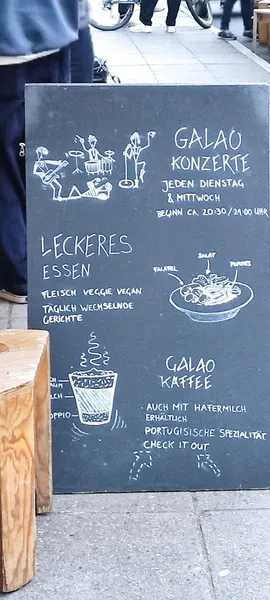 GALAO
KONZERTE
JEDEN DIENSTAG
& MITTWOCH
BEGINN CA. 20:30/21:00 UHR
LECKERES
ESSEN
FLEISCH VEGGIE VEGAN
TÄGLICH WECHSELNDE
GERICHTE
SALAT
FALAFEL
POMMES
GALAO
KAFFEE
AUCH MIT HAFERMILCH
ERHÄLTLICH
PORTUGISISCHE SPEZIALITÄT
CHECK IT OUT